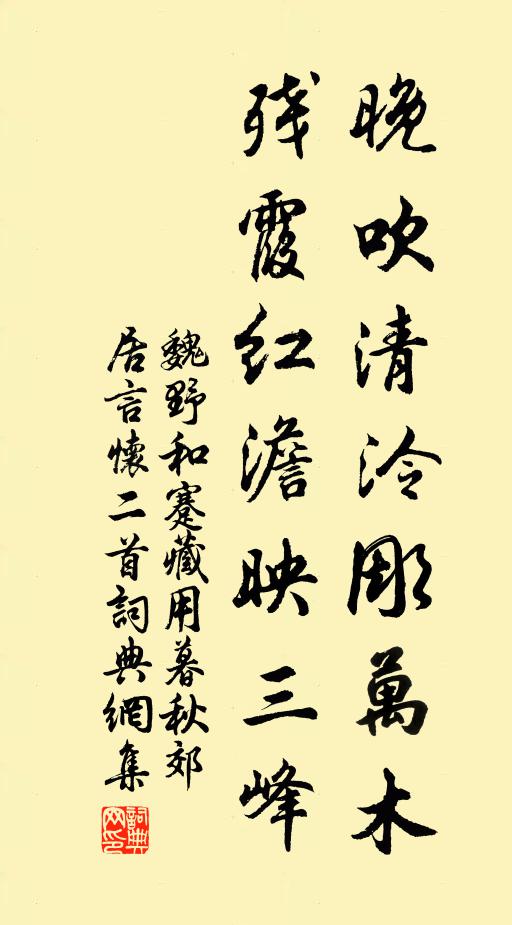 晚吹清泠彫萬木
残霞紅澹映三峰
魏野和蹇藏用暮秋郊
居言懷二首詞典網集
詞典
网印